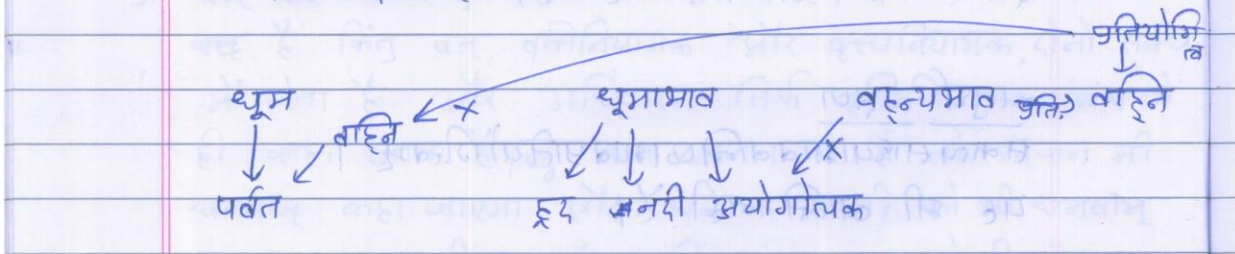 प्रतियोगित्व
धूम वह्नि धूमाभाव वह्न्यभाव प्रति. वह्नि
पर्वत ह्रद नदी अयोगोलक